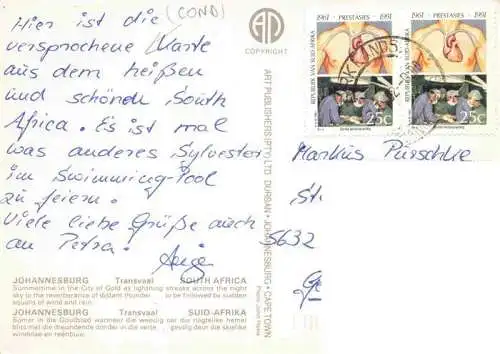 (COND)
Hier ist die
versprochene Karte
aus dem heißen
und schönen South
Africa. Es ist mal
was anderes Sylvester
im Swimming-Pool
zu feiern.
Viele liebe Grüße auch
an Petra.
JOHANNESBURG Transvaal SOUTH AFRICA
Summertime in the City of Gold as lightning streaks across the night
sky to the reverberance of distant thunder to be followed by sudden
squalls of wind and rain.
JOHANNESBURG Transvaal SUID-AFRIKA
Somer in die Goudstad wanneer die weerlig oor die nagtelike hemel
blits met die dreunende donder in die verte gevolg deur die skielike
windvlae en reënbuie.
COPYRIGHT
ART PUBLISHERS (PTY) LTD. DURBAN • JOHANNESBURG • CAPE TOWN
1961 • PRESTASIES • 1991
REPUBLIEK VAN SUID-AFRIKA
25c
1961 • PRESTASIES • 1991
25c
Markus Purschke
St.
5632